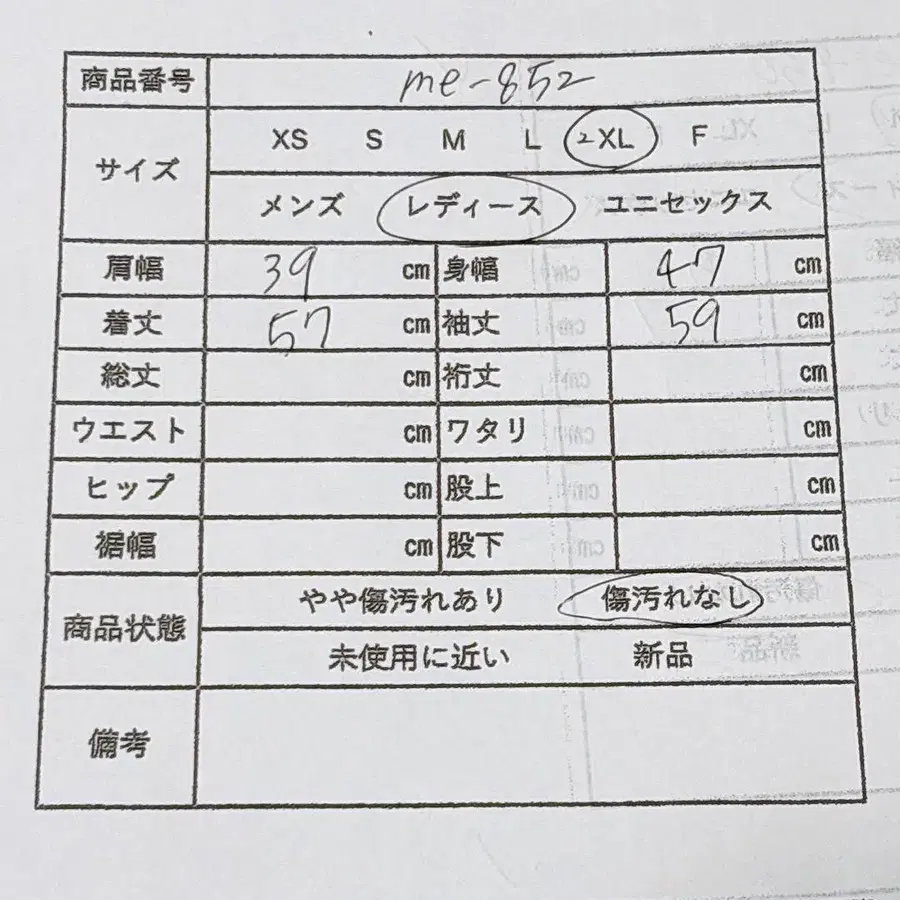 商品番号 me-852
サイズ XS S M L 2XL F
メンズ レディース ユニセックス
肩幅 39 cm 身幅 47 cm
着丈 57 cm 袖丈 59 cm
総丈 cm 裄丈 cm
ウエスト cm ワタリ cm
ヒップ cm 股上 cm
裾幅 cm 股下 cm
商品状態 やや傷汚れあり 傷汚れなし
未使用に近い 新品
備考